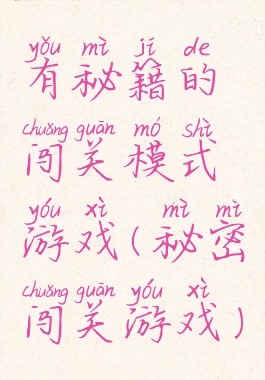 yǒu mì jí de
有秘籍的
chuǎng guān mó shì
闯关模式
yóu xì mì mì
游戏(秘密
chuǎng guān yóu xì
闯关游戏)